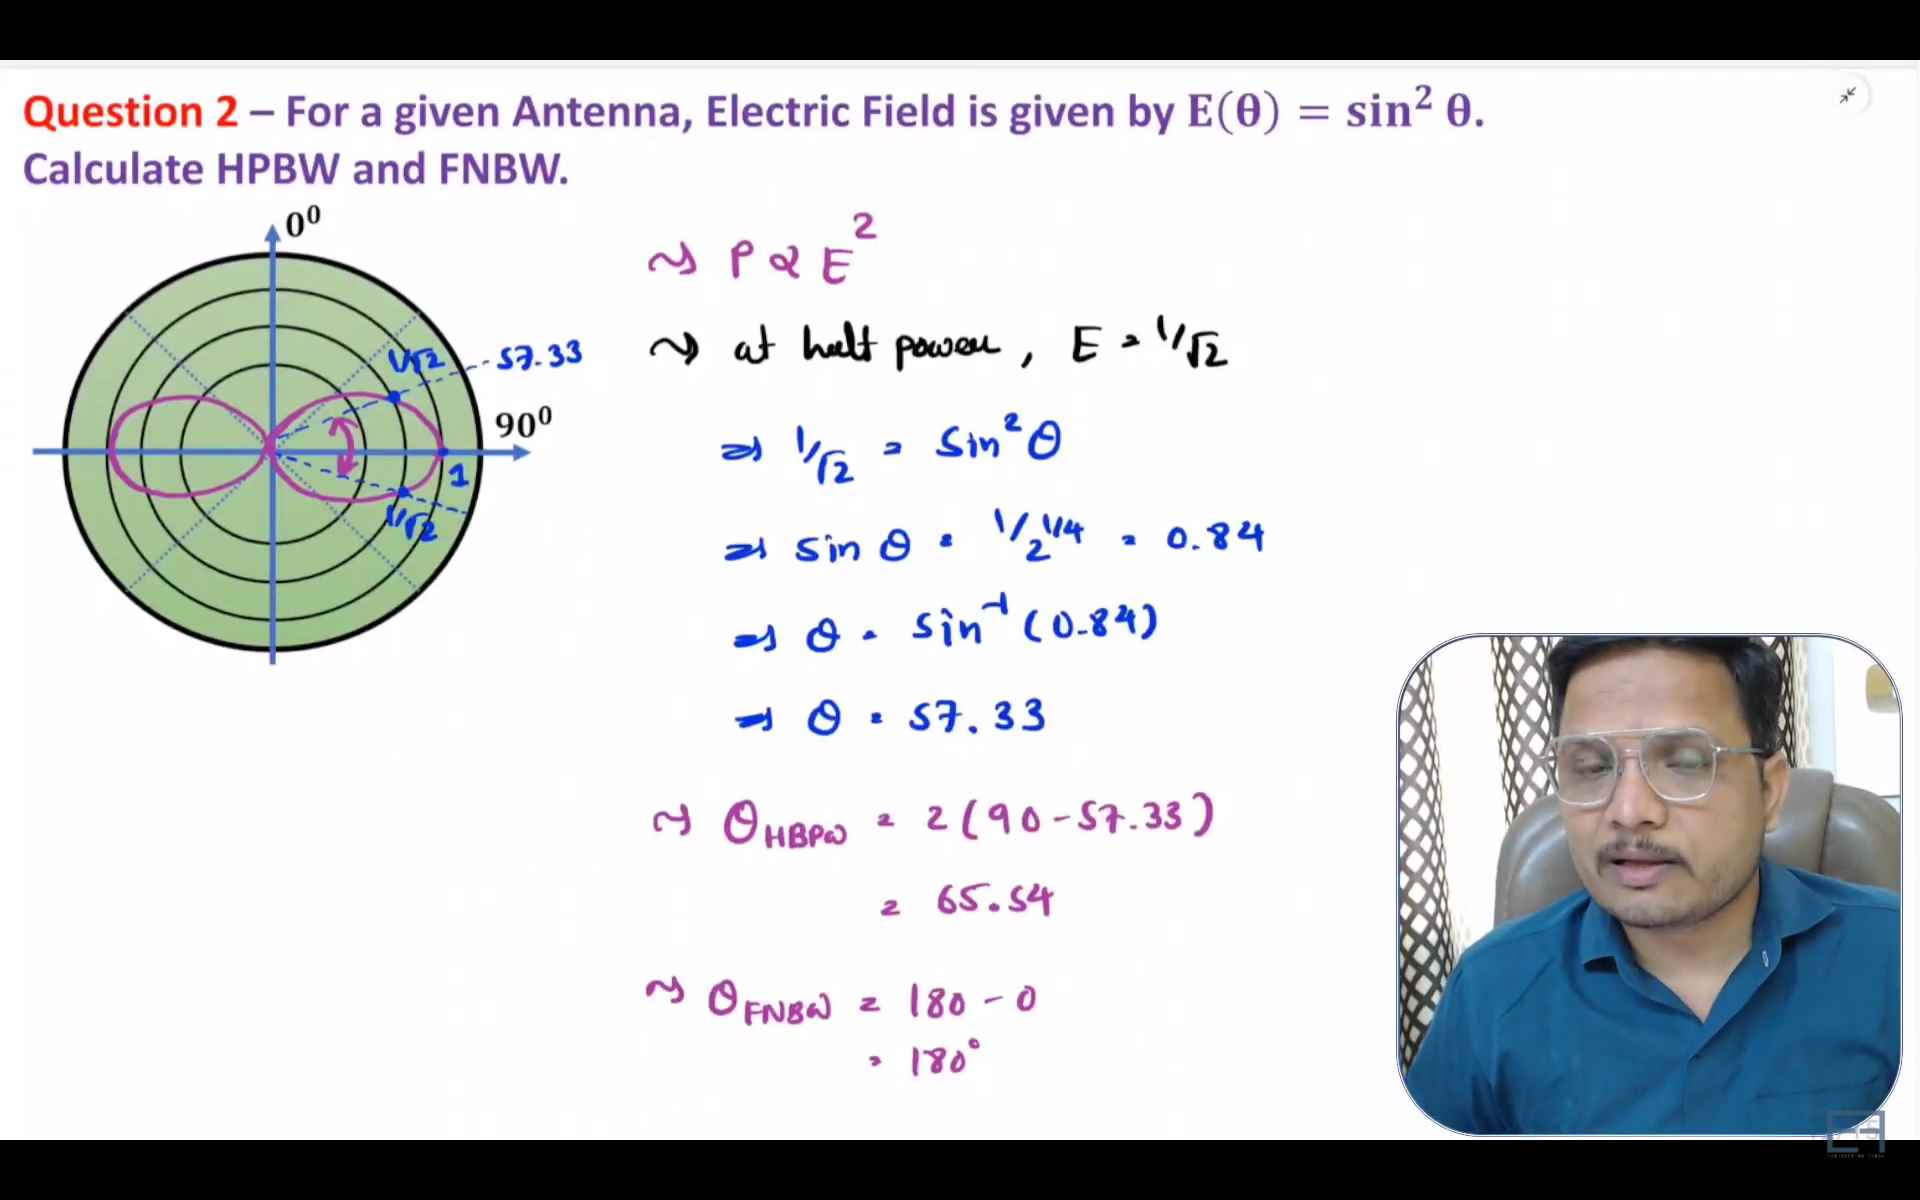 Question 2 – For a given Antenna, Electric Field is given by E(θ) = sin² θ.
Calculate HPBW and FNBW.
0⁰
1/√2
57.33
90⁰
1
1/√2
~> P ∝ E²
~> at half power, E = 1/√2
⇒ 1/√2 = Sin²θ
⇒ sin θ = 1/2^1/4 = 0.84
⇒ θ = sin⁻¹(0.84)
⇒ θ = 57.33
~> θHBPW = 2(90-57.33)
= 65.54
~> θFNBW = 180 - 0
= 180°